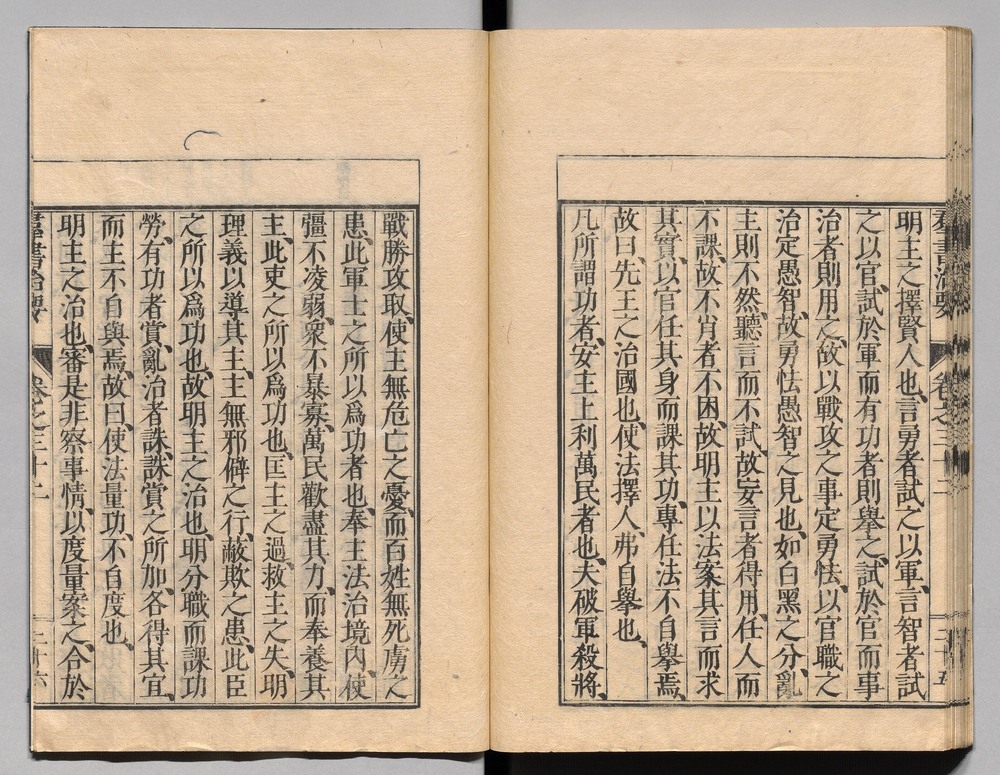 羣書治要 卷之三十二 二十五
明主之擇賢人也、言勇者試之以軍、言智者試
之以官、試於軍而有功者則舉之、試於官而事
治者則用之、故以戰攻之事定勇怯、以官職之
治定愚智、故勇怯愚智之見也、如白黑之分、亂
主則不然、聽言而不試、故妄言者得用、任人而
不課、故不肖者不困、故明主以法案其言而求
其實、以官任其身而課其功、專任法不自舉焉、
故曰、先王之治國也、使法擇人、弗自舉也、
凡所謂功者、安主上利萬民者也、夫破軍殺將、
戰勝攻取、使主無危亡之憂、而百姓無死虜之
患、此軍士之所以爲功者也、奉主法治境內、使
彊不凌弱、衆不暴寡、萬民歡盡其力、而奉養其
主、此吏之所以爲功也、匡主之過、救主之失、明
理義以導其主、主無邪僻之行、蔽欺之患、此臣
之所以爲功也、故明主之治也、明分職而課功
勞、有功者賞、亂治者誅、誅賞之所加、各得其宜、
而主不自與焉、故曰、使法量功、不自度也、
明主之治也、審是非、察事情、以度量案之、合於
羣書治要 卷之三十二 二十六